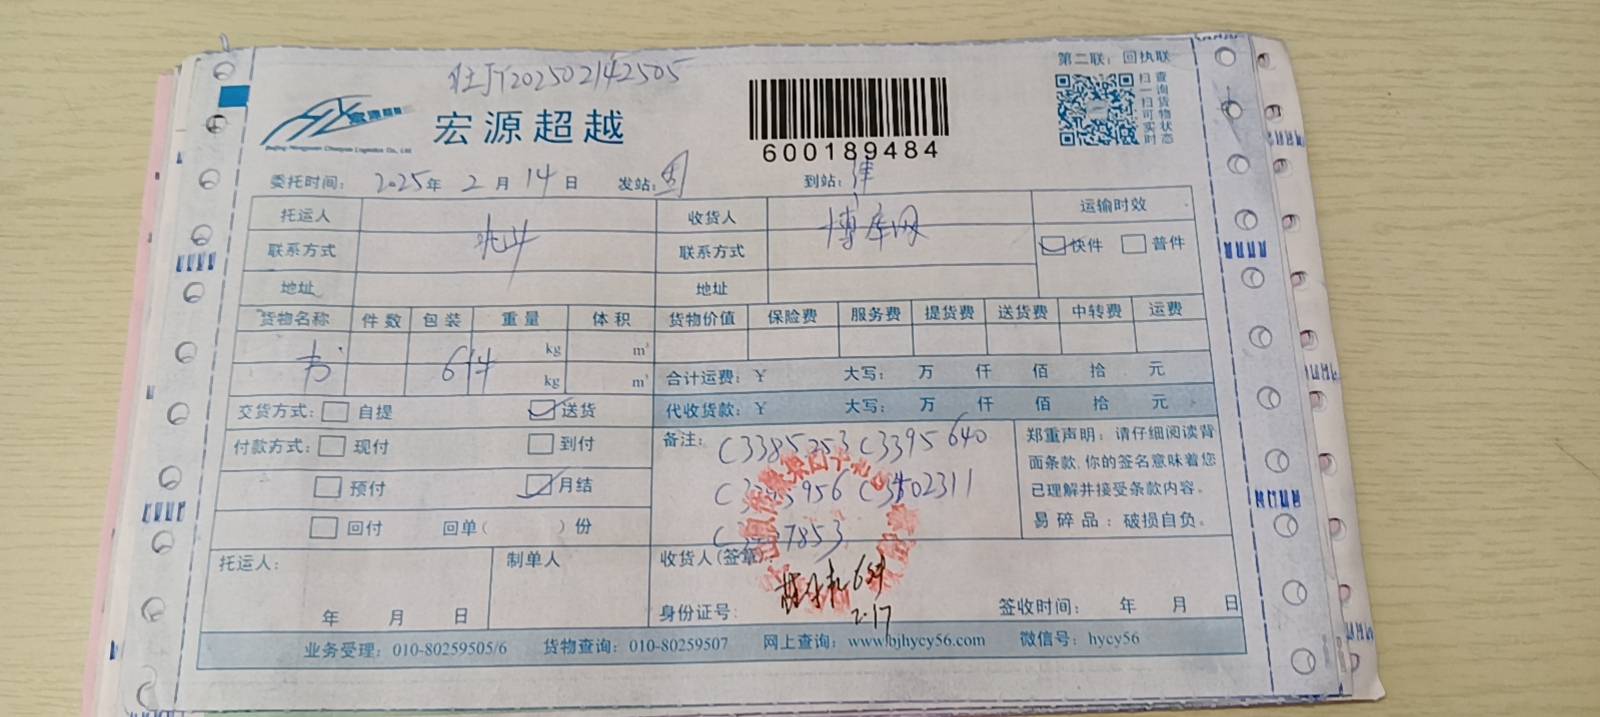 第二联：回执联
JY202502142505
宏源超越
扫一扫可实时
查询货物状态
600189484
委托时间： 2025年 2月 14日 发站： 到站：津
托运人 收货人 博库网 运输时效
联系方式 联系方式 快件 普件
地址 地址
货物名称 件数 包装 重量 体积 货物价值 保险费 服务费 提货费 送货费 中转费 运费
kg m³
书 6件 kg m³ 合计运费：¥ 大写： 万 仟 佰 拾 元
交货方式： 自提 送货 代收货款：¥ 大写： 万 仟 佰 拾 元
付款方式： 现付 到付 备注： C3385253 C3395640
预付 月结 956 C3402311
回付 回单（ ）份 7853
郑重声明：请仔细阅读背
面条款，你的签名意味着您
已理解并接受条款内容。
易碎品：破损自负。
托运人： 制单人 收货人（签章）
6件
年 月 日 身份证号： 2.17 签收时间： 年 月 日
业务受理：010-80259505/6 货物查询：010-80259507 网上查询：www.bjhycy56.com 微信号：hycy56